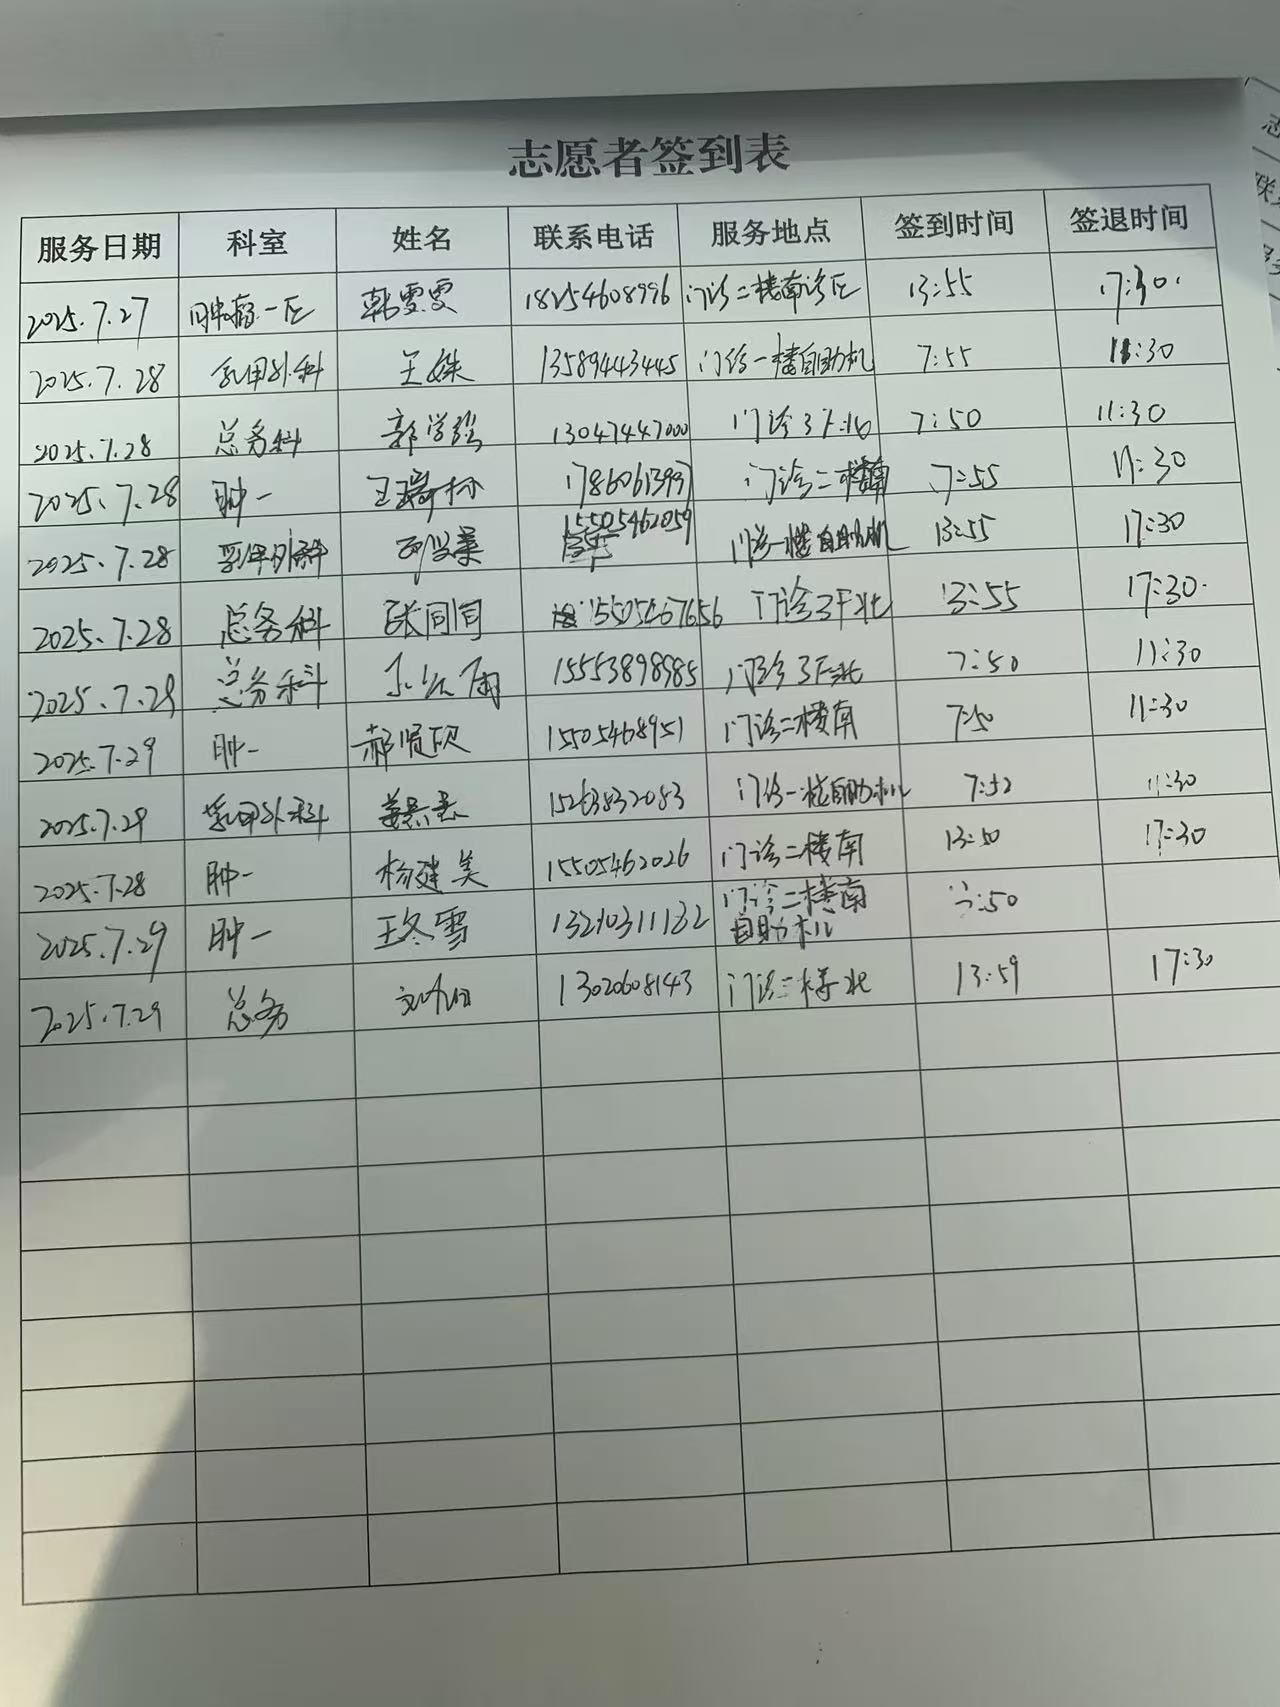 志愿者签到表
服务日期 科室 姓名 联系电话 服务地点 签到时间 签退时间
2025.7.27 肿瘤一区 韩雯雯 18254608996 门诊二楼南诊区 13:55 17:30
2025.7.28 乳甲外科 王姝 13589443445 门诊一楼自助机 7:55 11:30
2025.7.28 总务科 13047447000 门诊3F北 7:50 11:30
2025.7.28 肿一 门诊二楼南 7:55 11:30
2025.7.28 乳甲外科 15505462059 门诊一楼自助机 13:55 17:30
2025.7.28 总务科 张同同 15505467656 门诊3F北 13:55 17:30
2025.7.29 总务科 15553898985 门诊3F北 7:50 11:30
2025.7.29 肿一 郝贤硕 15505468951 门诊二楼南 7:50 11:30
2025.7.29 乳甲外科 15263832083 门诊一楼自助机 7:52 11:30
2025.7.28 肿一 杨建美 15505462026 门诊二楼南 13:50 17:30
2025.7.29 肿一 王冬雪 13210311132 门诊二楼南
自助机
2025.7.29 总务 13020608143 门诊三楼北 13:59 17:30